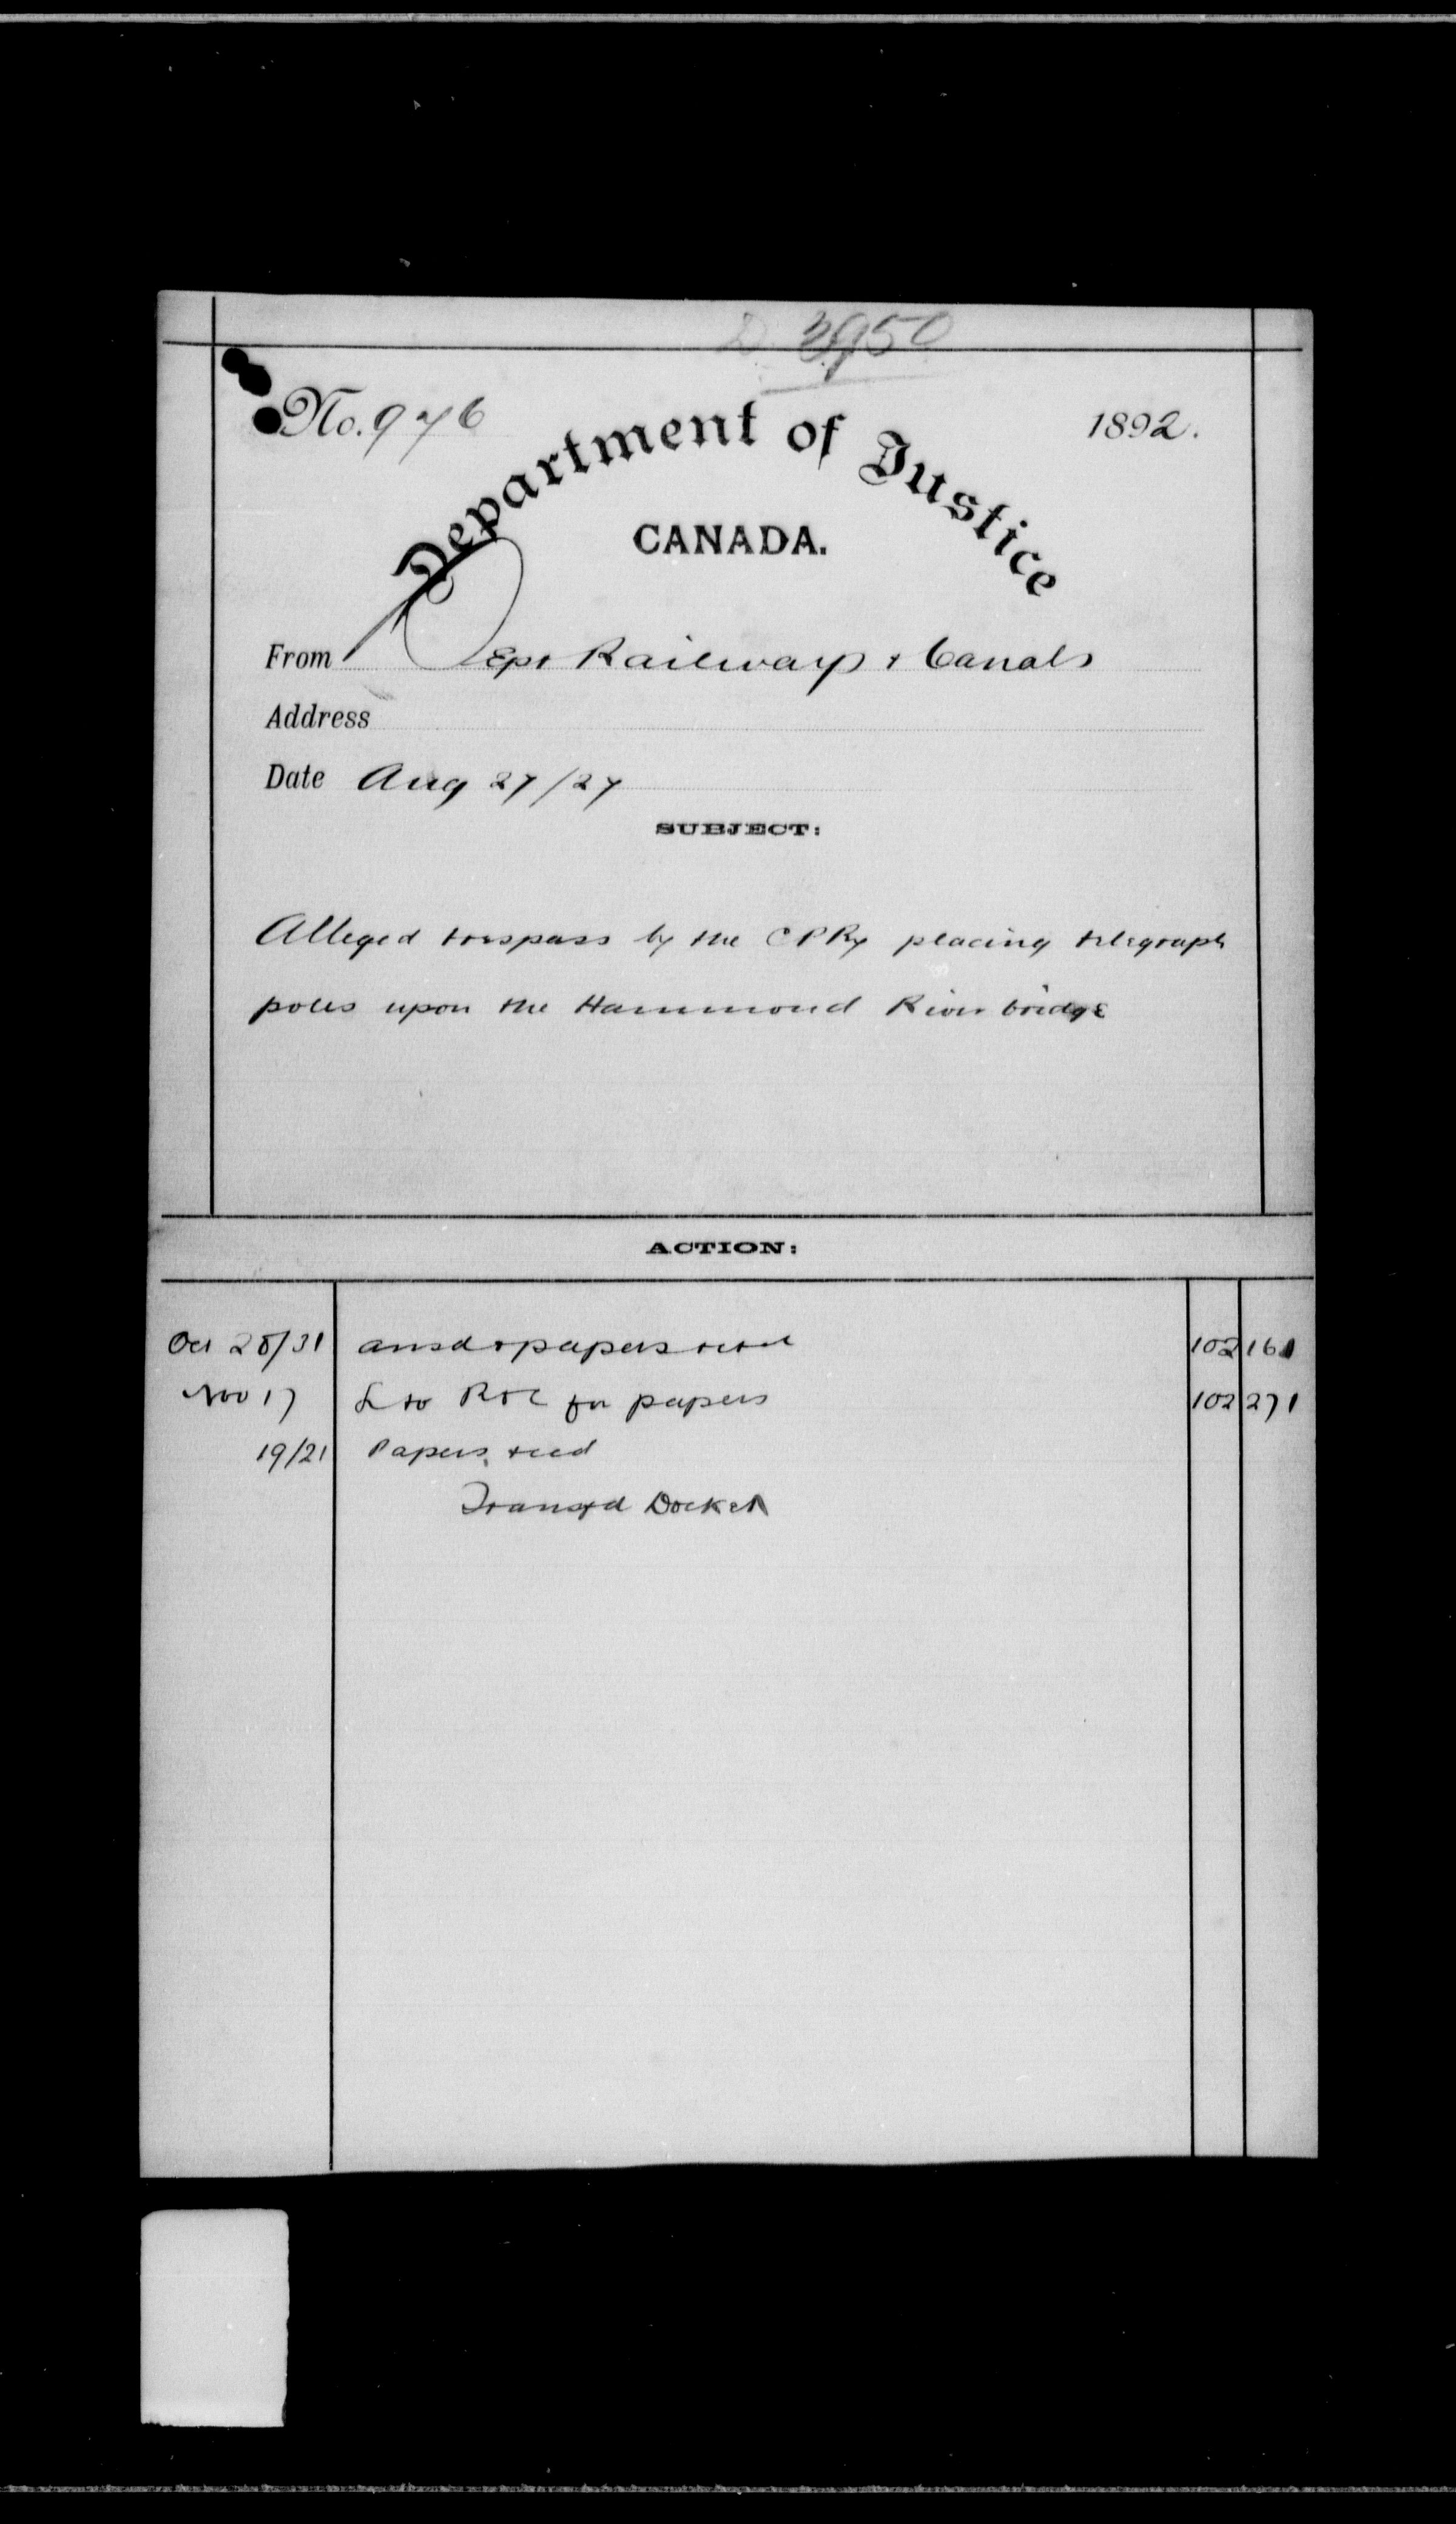 D. 3950
No. 976 1892.
Department of Justice
CANADA.
From Dept Railways & Canals
Address
Date Aug 27/27
SUBJECT:
Alleged trespass by the CPRy placing telegraph
poles upon the Hammond River bridge
ACTION:
Oct 28/31 ansd & papers retd 102 161
Nov 17 L to R & C for papers 102 271
19/21 Papers recd
Transfd Docket